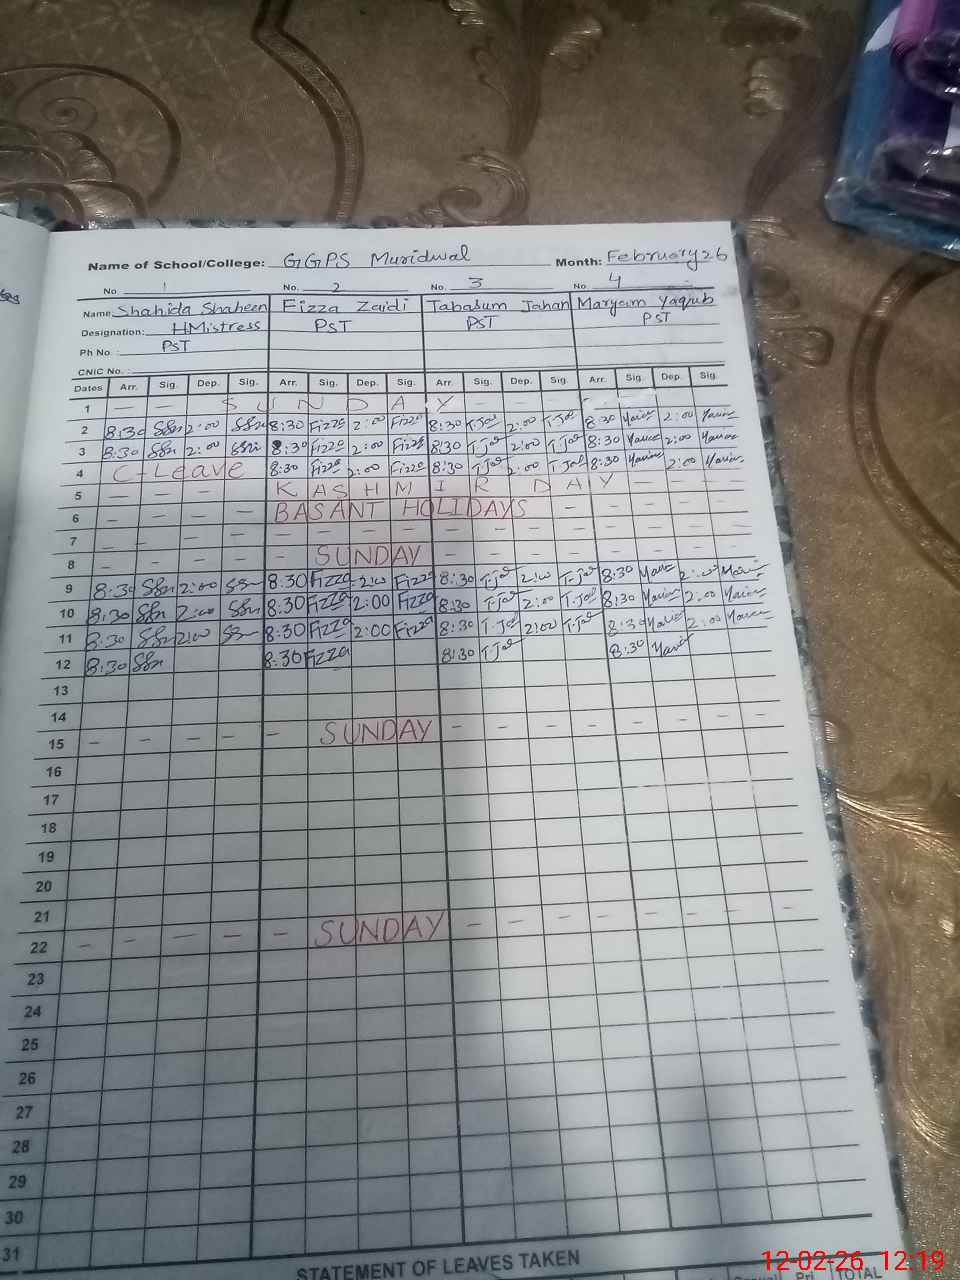 Name of School/College: GGPS Muridwal Month: February 26
No 1 No. 2 No. 3 No. 4
Name Shahida Shaheen Fizza Zaidi Tabasum Jahan Maryam Yaqub
Designation: HMistress PST PST PST
Ph No.: PST
CNIC No.:
Dates Arr. Sig. Dep. Sig. Arr. Sig. Dep. Sig. Arr. Sig. Dep. Sig. Arr. Sig. Dep. Sig.
1 — — S U N D A Y — — — — — —
2 8:30 2:00 8:30 Fizza 2:00 Fizza 8:30 T.Jah 2:00 T.Jah 8:30 2:00
3 8:30 2:00 8:30 Fizza 2:00 Fizza 8:30 T.Jah 2:00 T.Jah 8:30 2:00
4 C-Leave 8:30 Fizza 2:00 Fizza 8:30 T.Jah 2:00 T.Jah 8:30 2:00
5 — — — — K A S H M I R D A Y — — —
6 — — — — BASANT HOLIDAYS — — — — —
7 — — — — — — — — — — — — — — — —
8 — — — — — SUNDAY — — — — — — — —
9 8:30 2:00 8:30 Fizza 2:00 Fizza 8:30 T.Jah 2:00 T.Jah 8:30 2:00
10 8:30 2:00 8:30 Fizza 2:00 Fizza 8:30 T.Jah 2:00 T.Jah 8:30 2:00
11 8:30 2:00 8:30 Fizza 2:00 Fizza 8:30 T.Jah 2:00 T.Jah 8:30 2:00
12 8:30 8:30 Fizza 8:30 T.Jah 8:30
13
14
15 — — — — — SUNDAY — — — — — — — —
16
17
18
19
20
21
22 — — — — — SUNDAY — — — — — — — —
23
24
25
26
27
28
29
30
31
STATEMENT OF LEAVES TAKEN
TOTAL
12-02-26 12:19